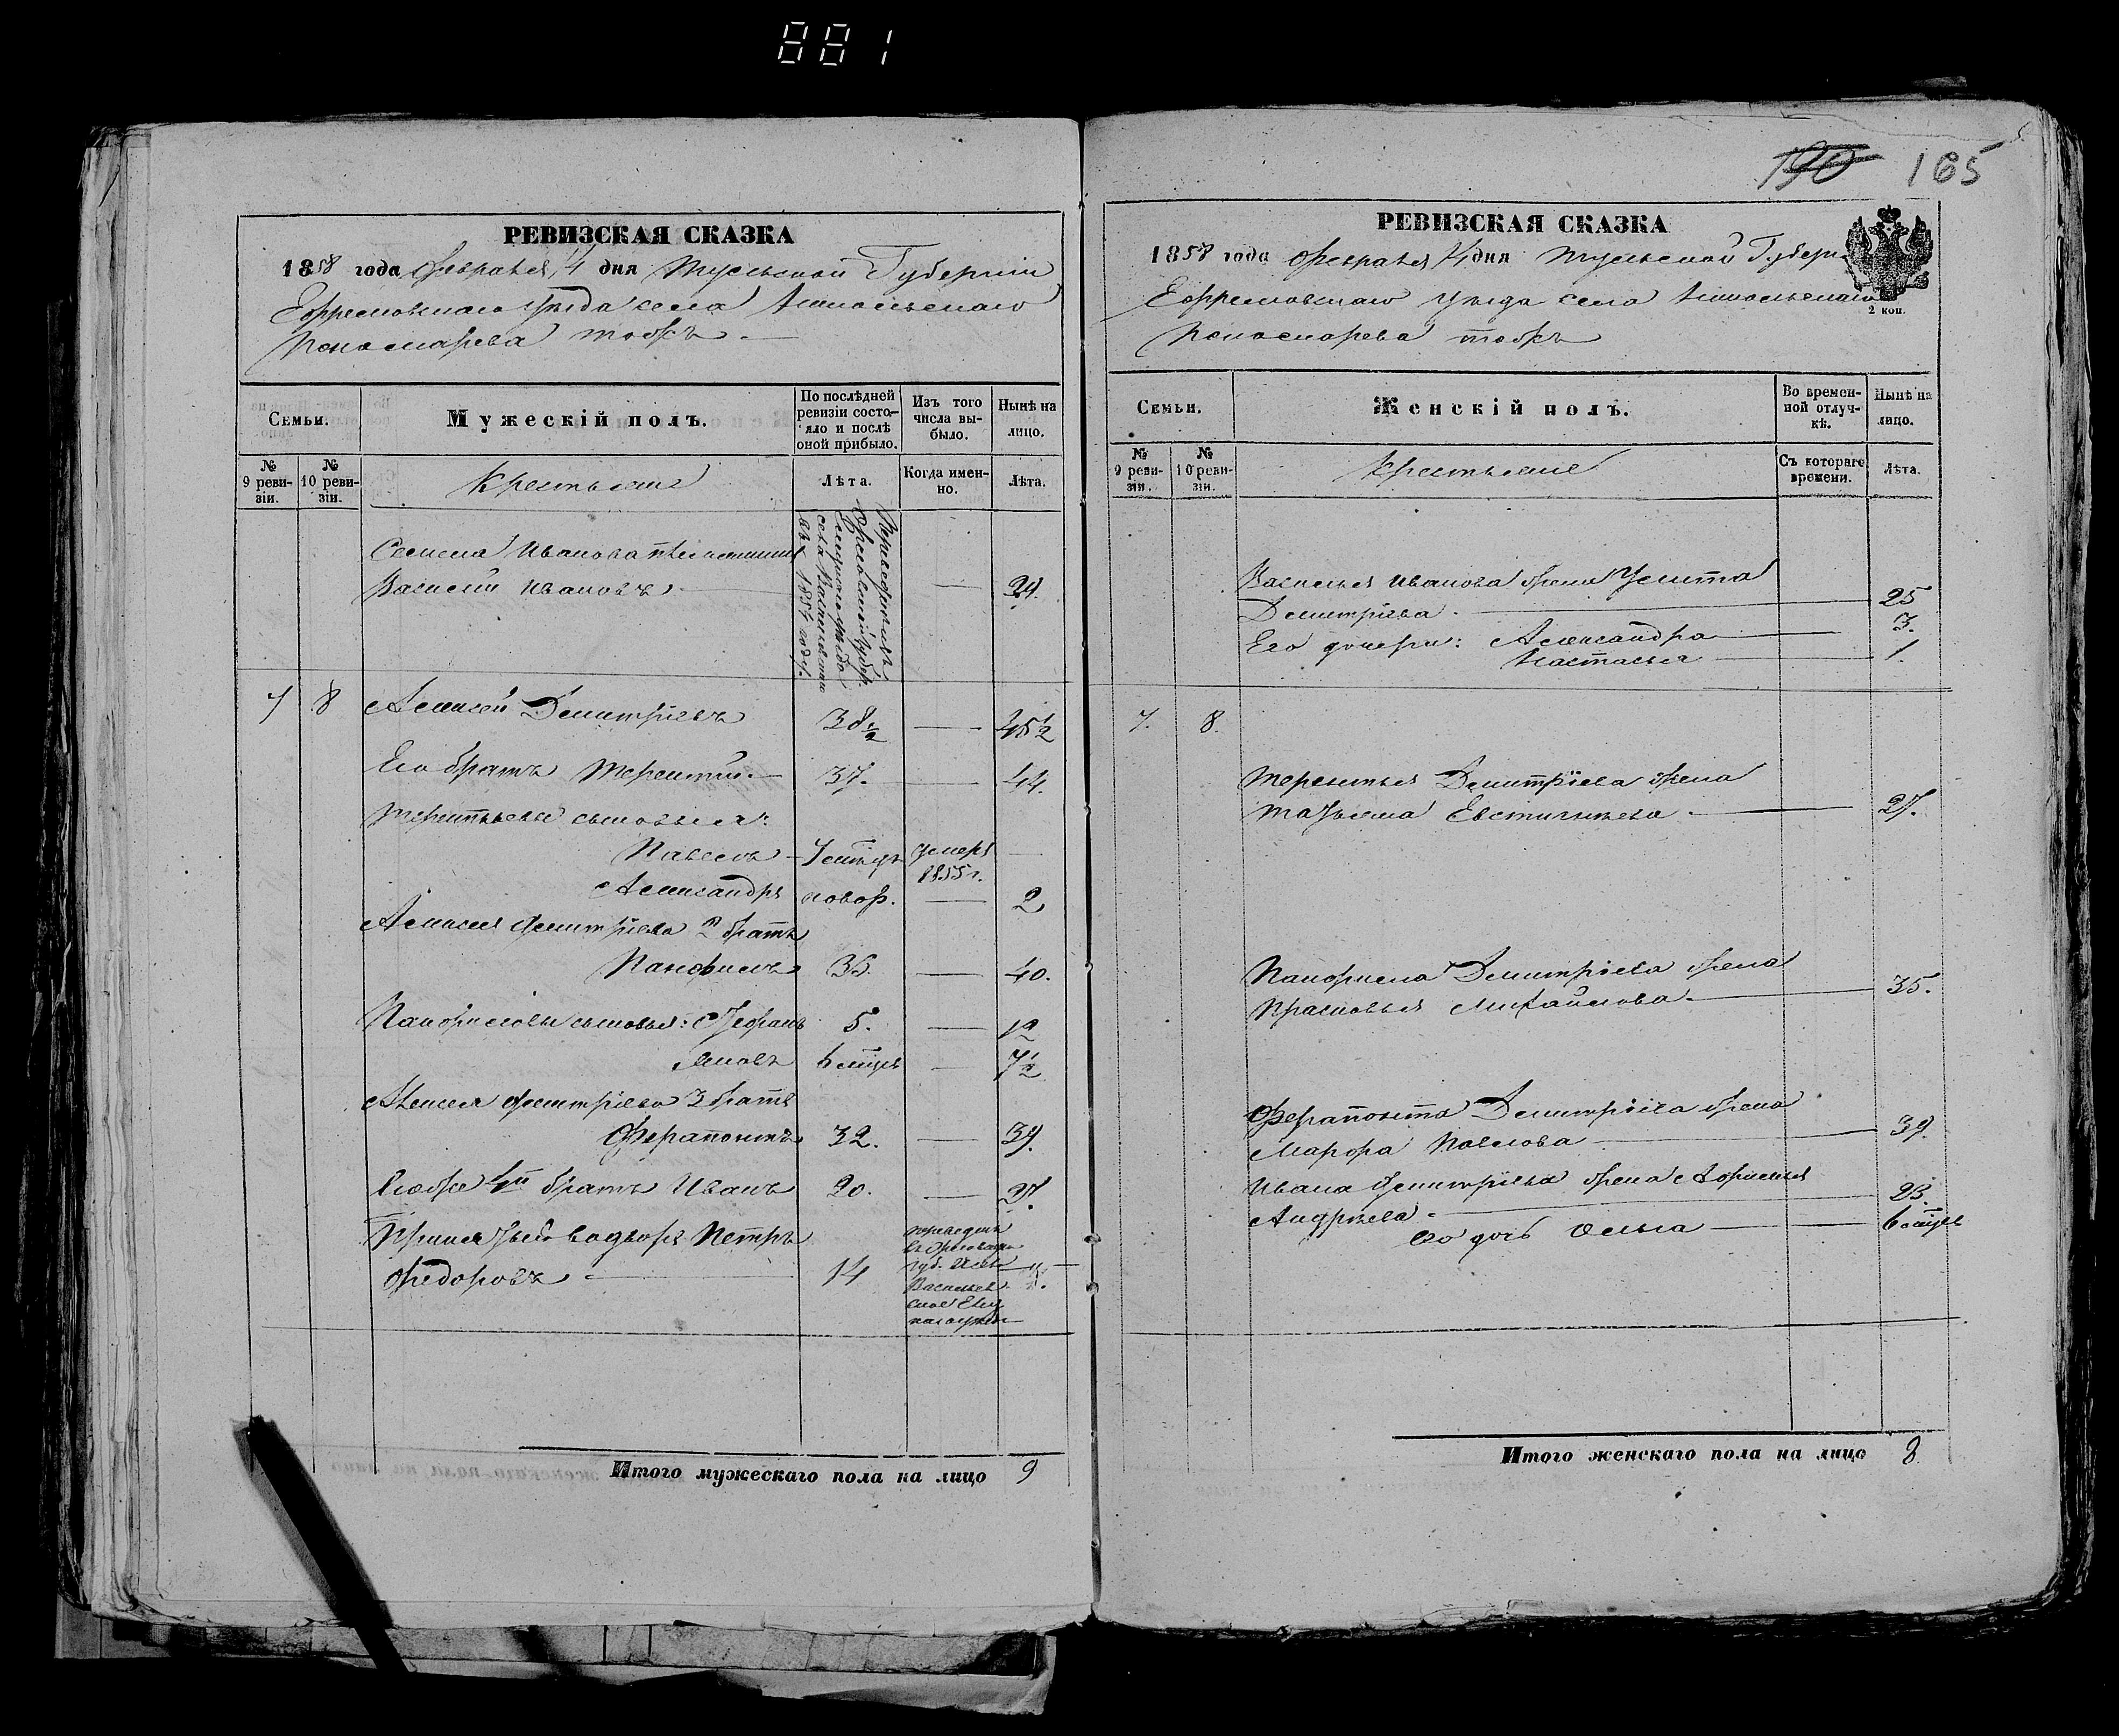 881
190 165
РЕВИЗСКАЯ СКАЗКА
1858 года февраля 14 дня Тульской Губерніи
Ефремовскаго уѣзда села Никольскаго
Пономарева тожъ
Семьи.
Мужескій полъ.
По послѣдней ревизіи состояло и послѣ оной прибыло.
Изъ того числа выбыло.
Нынѣ на лицо.
№ 9 ревизіи.
№ 10 ревизіи.
Крестьяне
Лѣта.
Когда именно.
Лѣта.
Семена Иванова
Василій Ивановъ — 29.
въ 1857 году.
7 8 Алексей Дмитріевъ 38½ — 45½
Его братъ Терентий — 37. — 44.
Терентьевы сыновья:
Павелъ — умеръ 1855 г. —
Александръ новор. — 2
Алексея Дмитріева 2й братъ
Панфилъ 33. — 40.
Панфиловы сыновья: 5. — 12
6 мцъ — 7½
Алексея Дмитріева 3 братъ
Ферапонтъ 32. — 39.
Его же 4й братъ Иванъ 20. — 27.
Петръ
Федоровъ — 14
Итого мужескаго пола на лицо 9
РЕВИЗСКАЯ СКАЗКА
1858 года февраля 14 дня Тульской Губерн
Ефремовскаго уѣзда села Никольскаго
Пономарева тожъ
2 коп.
Семьи.
Женскій полъ.
Во временной отлучкѣ.
Нынѣ на лицо.
№ 9 ревизіи.
№ 10 ревизіи.
Крестьяне
Съ котораго времени.
Лѣта.
Василья Иванова жена Улита
Дмитріева — 25
Его дочери: Александра — 3.
Настасья — 1.
7. 8.
Терентья Дмитріева жена
Татьяна Евстигнѣева — 27.
Панфила Дмитріева жена
Прасковья Михайлова — 35.
Ферапонта Дмитріева жена
Марфа Павлова — 39.
Ивана Дмитріева жена Афимья
Андрѣева — 23.
Его дочь Ольга — 6 мцъ
Итого женскаго пола на лицо 8